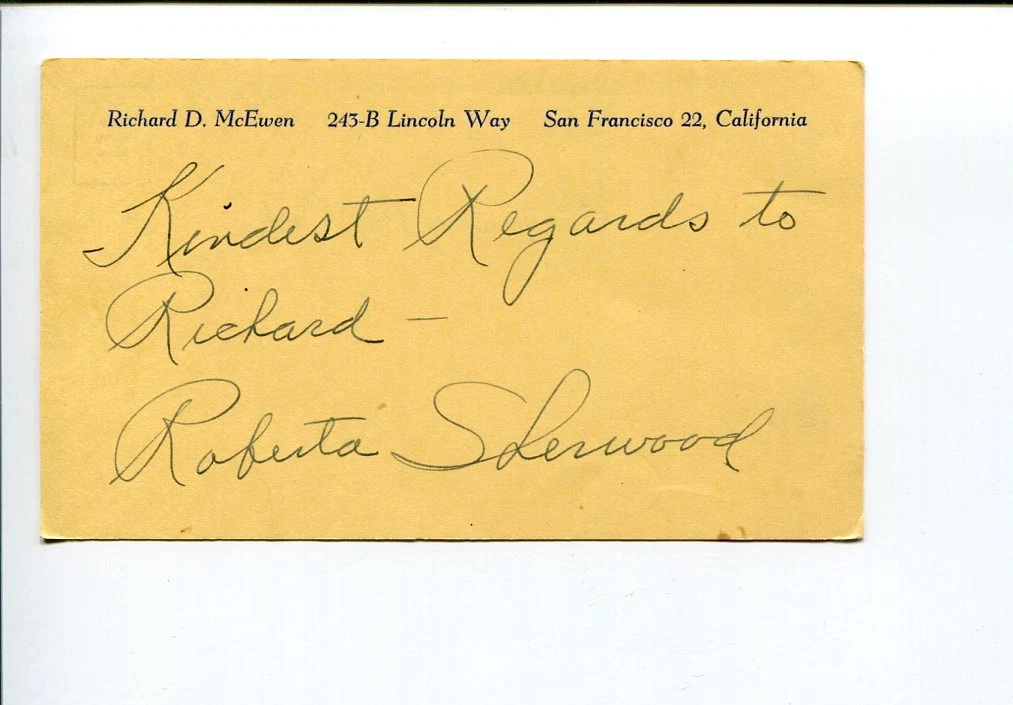 Richard D. McEwen 243-B Lincoln Way San Francisco 22, California
Kindest Regards to
Richard –
Roberta Sherwood